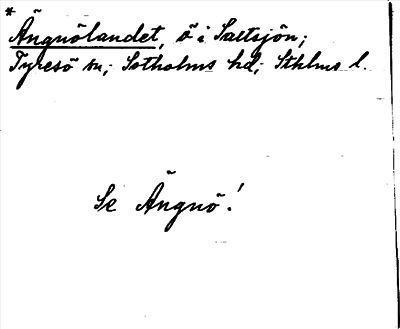 *
Ängnölandet, ö i Saltsjön;
Tyresö sn; Sotholms hd; Sthlms l.
Se Ängnö!